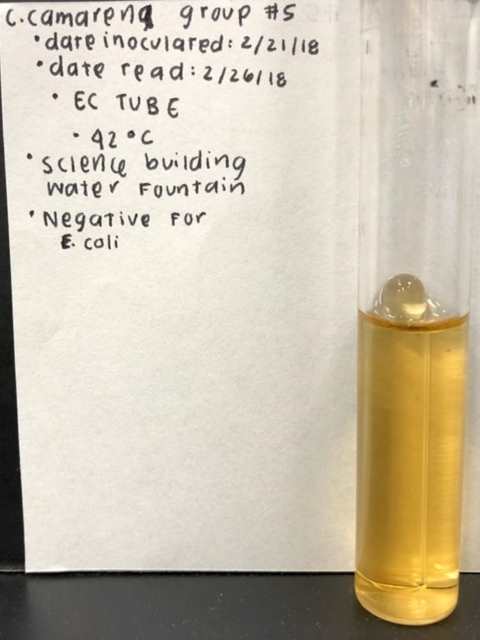 C. Camarena group #5
• date inoculated: 2/21/18
• date read: 2/26/18
• EC TUBE
• 42°C
• Science building
water fountain
• Negative for
E. coli